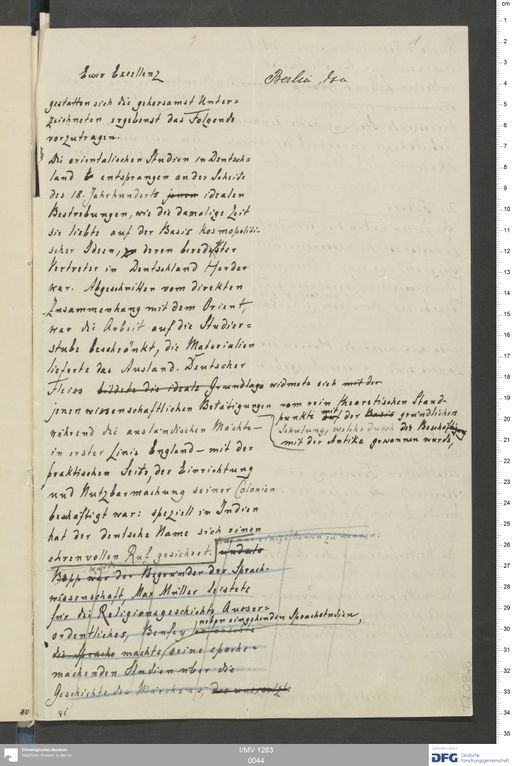 1
Euer Excellenz
Berlin, den
gestatten sich die gehorsamst Unter=
zeichneten ergebenst das Folgende
vorzutragen.
Die orientalischen Studien in Deutsch=
land entsprangen an der Scheide
des 18. Jahrhunderts jenen idealen
Bestrebungen, wie die damalige Zeit
sie liebte auf der Basis kosmopoliti=
scher Ideen, deren beredtster
Vertreter in Deutschland Herder
war. Abgeschnitten vom direkten
Zusammenhang mit dem Orient,
war die Arbeit auf die Studier=
stube beschränkt, die Materialien
lieferte das Ausland. Deutscher
Fleiss bildete die ideale Grundlage widmete sich mit der
jenen wissenschaftlichen Betätigungen vom rein theoretischen Stand-
punkte mit der Basis gründlichen
Schulung, welche durch die Beschäftigung
mit der Antike gewonnen wurde,
während die ausländischen Mächte –
in erster Linie England – mit der
praktischen Seite, der Einrichtung
und Nutzbarmachung seiner Colonien
beschäftigt war: speziell in Indien
hat der deutsche Name sich einen
ehrenvollen Ruf gesichert.
um nur einige Namen zu nennen:
Bopp war der Begründer der Sprach-
wissenschaft Max Müller leistete
für die Religionsgeschichte Ausser-
ordentliches, Benfey
neben eingehenden Sprachstudien,
die Sprache machte seine epoche-
machenden Studien über die
Geschichte des Märchens,
40
Ethnologisches Museum
Staatliche Museen zu Berlin
I/MV 1263
0044
DFG
Deutsche
Forschungsgemeinschaft